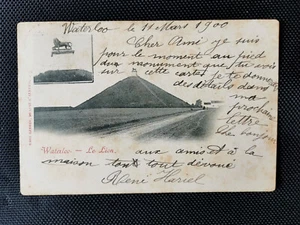 Waterloo le 11 Mars 1900
Cher Ami je suis
pour le moment au pied
du monument que tu vois
sur cette carte je te donnerai
des détails dans ma
prochaine
lettre
bonjour
Waterloo - Le Lion.
aux amis et à la
maison ton tout dévoué
René Hariel